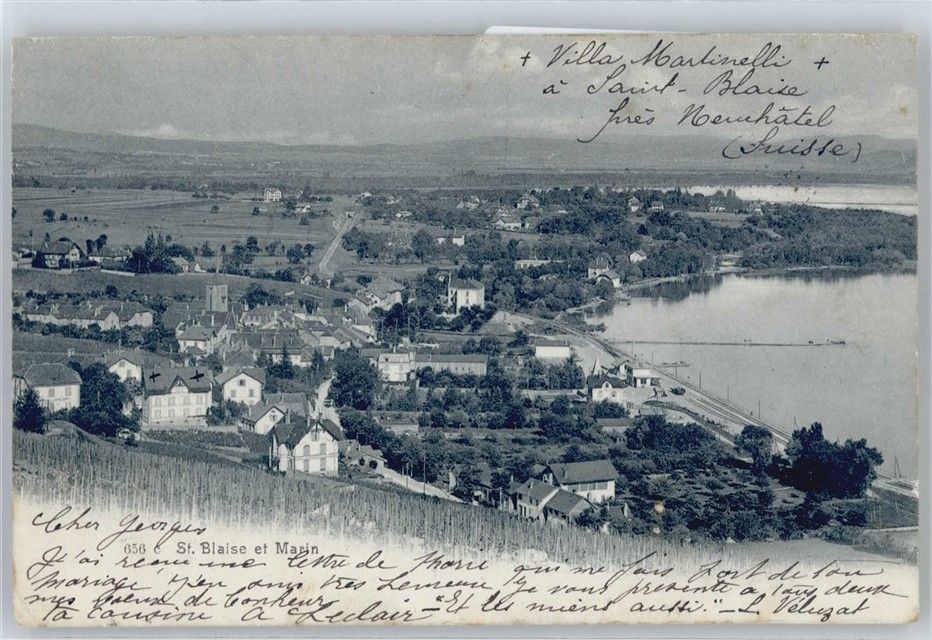 + Villa Martinelli +
à Saint-Blaise
près Neuchâtel
(Suisse)
Cher Georges
656 c St. Blaise et Marin
J'ai reçu une lettre de Pierre qui me fais part de ton
mariage j'en suis très heureux je vous présente à tous deux
mes vœux de bonheur
"Et les miens aussi." - L. Véluzat
Ta cousine A Leclair